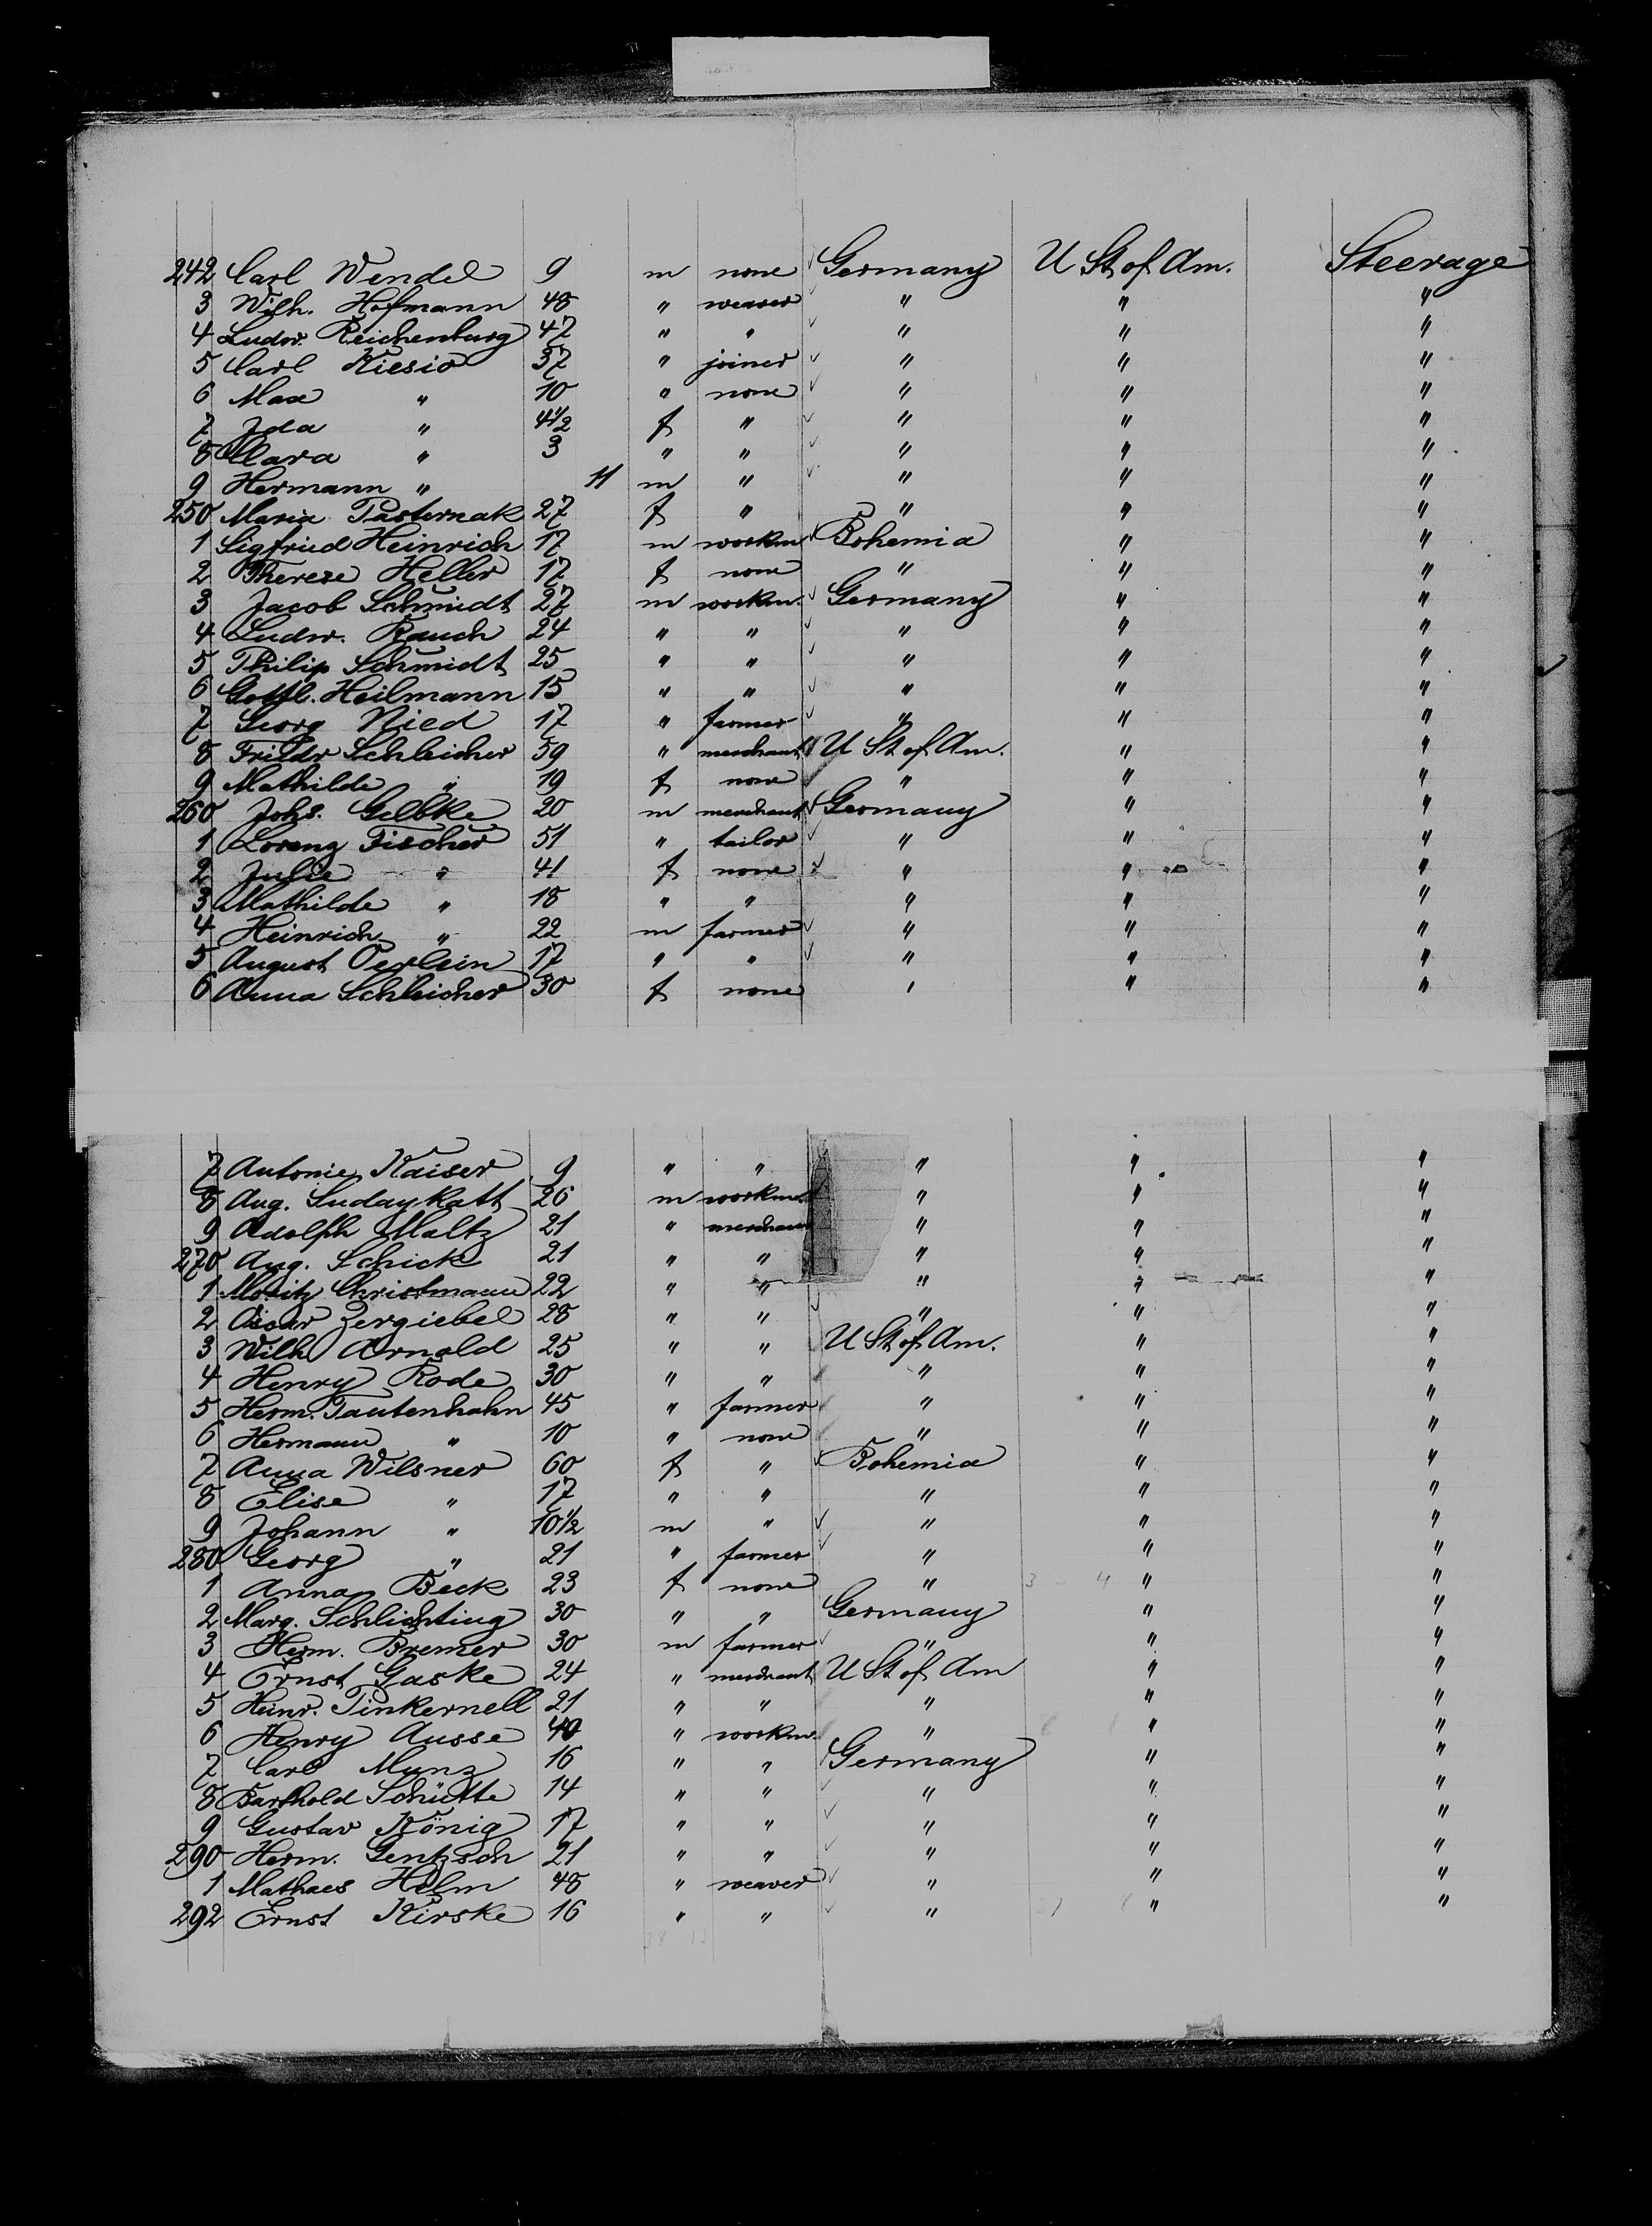 242 Carl Wendel 9 m none Germany U St of Am. Steerage
3 Wilh. Hofmann 48 " weaver " " "
4 Ludw. Reichenburg 47 " " " " "
5 Carl 37 " joiner " " "
6 Max " 10 " none " " "
7 Ida " 4 1/2 f " " " "
8 Clara " 3 " " " " "
9 Hermann " 11 m " " " "
250 Maria Pasternak 27 f " " " "
1 Sigfried Heinrich 17 m workm Bohemia " "
2 Therese Heller 17 f none " " "
3 Jacob Schmidt 27 m workm. Germany " "
4 Ludw. Rauch 24 " " " " "
5 Philip Schmidt 25 " " " " "
6 Gottl. Heilmann 15 " " " " "
7 Georg Nied 17 " farmer " " "
8 Friedr Schleicher 59 " merchant U St of Am. " "
9 Mathilde " 19 f none " " "
260 Johs. Gelbke 20 m merchant Germany " "
1 Lorenz Fischer 51 " tailor " " "
2 Julie " 41 f none " " "
3 Mathilde " 18 " " " " "
4 Heinrich " 22 m farmer " " "
5 August Oerlein 17 " " " " "
6 Anna Schleicher 30 f none " " "
7 Antonie Kaiser 9 " " " " "
8 Aug. Sudaykatt 26 m workm. " " "
9 Adolph Maltz 21 " merchant " " "
270 Aug. Schick 21 " " " " "
1 Moritz Christmann 22 " " " " "
2 Oscar Zergiebel 28 " " " " "
3 Wilh Arnold 25 " " U St of Am. " "
4 Henry Rode 30 " " " " "
5 Herm. Tautenhahn 45 " farmer " " "
6 Hermann " 10 " none " " "
7 Anna Wilsner 60 f " Bohemia " "
8 Elise " 17 " " " " "
9 Johann " 10 1/2 m " " " "
280 Georg " 21 " farmer " " "
1 Anna Beck 23 f none " " "
2 Marg. Schlichting 30 " " Germany " "
3 Herm. Bremer 30 m farmer " " "
4 Ernst Gaske 24 " merchant U St of Am " "
5 Heinr. Tinkernell 21 " " " " "
6 Henry Ausse 40 " workm. " " "
7 Carl Munz 16 " " Germany " "
8 Barthold Schütte 14 " " " " "
9 Gustav König 17 " " " " "
290 Herm. Gentzsch 21 " " " " "
1 Mathaes Holm 48 " weaver " " "
292 Ernst Kirske 16 " " " " "